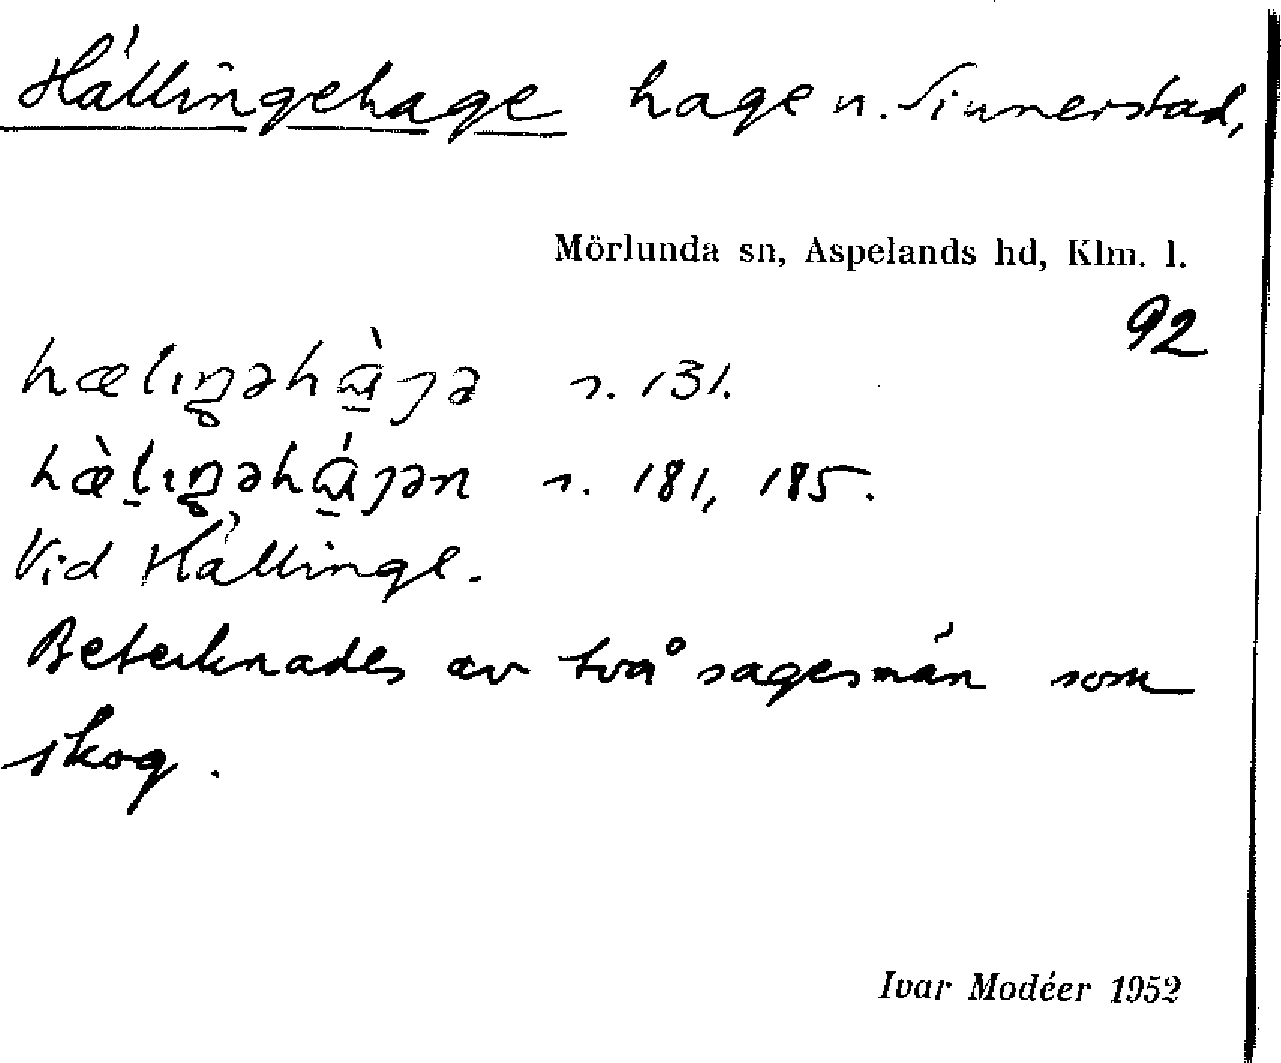 Hällingehage hage n. Sinnerstad,
Mörlunda sn, Aspelands hd, Klm. l.
92
hælıŋəhàɡə s. 131.
hæ̀lıŋəháɡən s. 181, 185.
Vid Hällinge.
Betecknades av två sagesmän som
skog.
Ivar Modéer 1952